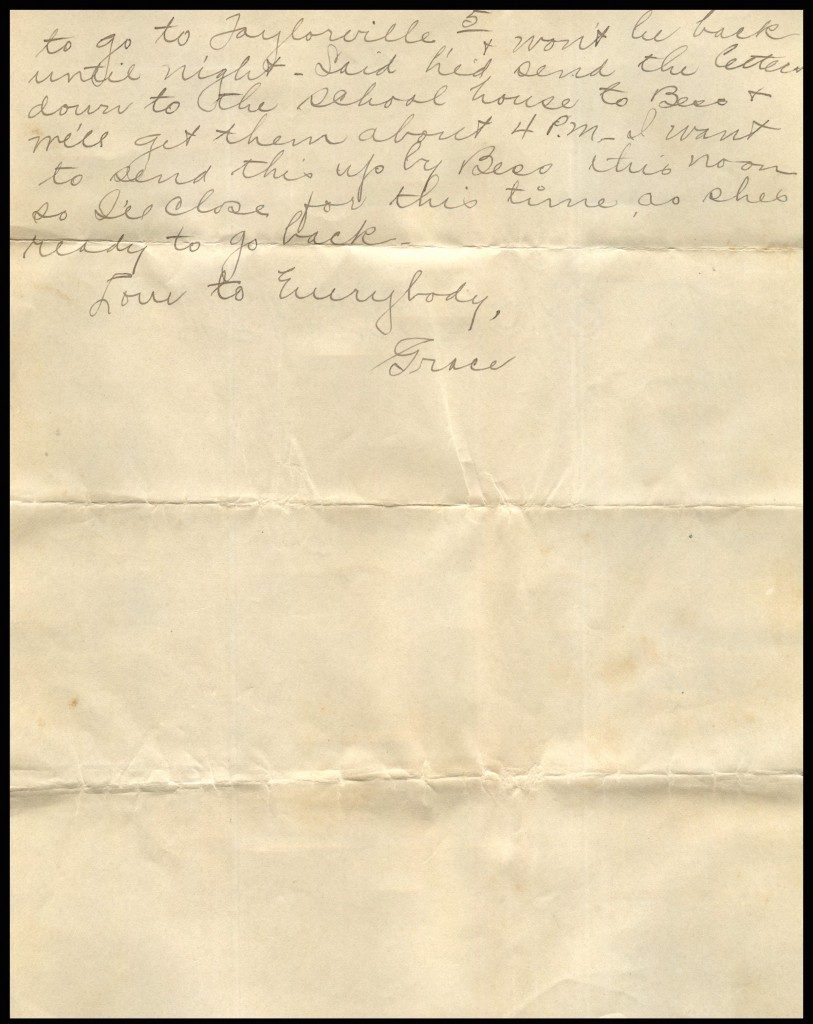 5
to go to Taylorville & won't be back
until night - Said he'd send the letters
down to the school house to Bess &
we'll get them about 4 P.M. - I want
to send this up by Bess this noon
so I'll close for this time, as she's
ready to go back -
Love to Everybody,
Grace